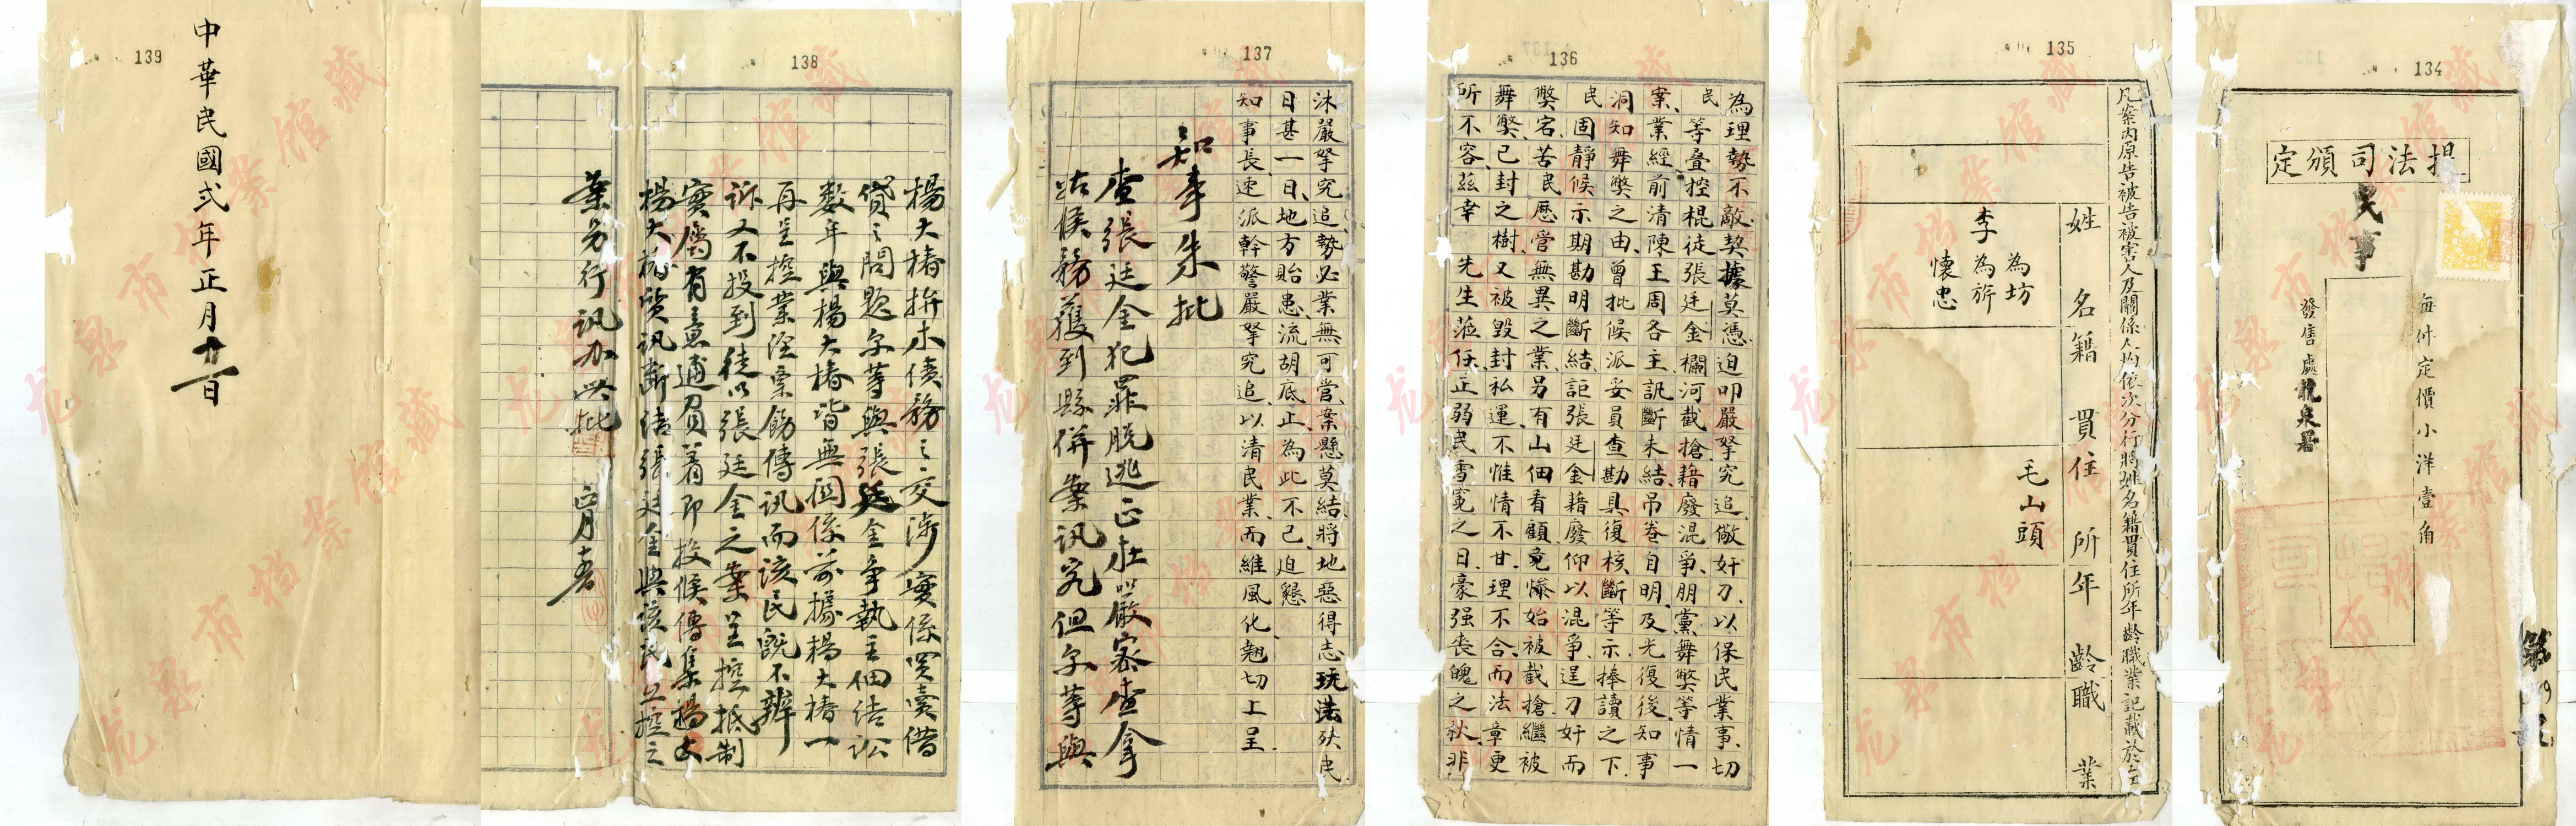 134
提法司頒定
民事
每件定價小洋壹角
發售處龍泉署
135
凡案內原告被告被害人及關係人均依次分行將姓名籍貫住所年齡職業記載於左
姓名籍貫住所年齡職業
為坊
李為旂
懷忠
毛山頭
136
為理勢不敵契據莫憑迫叩嚴拏究追儆奸刁以保民業事切
民等疊控棍徒張廷金欄河截搶藉廢混爭朋黨舞弊等情一
案業經前清陳王周各主訊斷未結吊卷自明及光復後知事
洞知舞弊之由曾批候派妥員查勘具復核斷等示捧讀之下
民固靜候示期勘明斷結詎張廷金藉廢仰以混爭逞刀奸而
弊宕苦民歷管無異之業另有山佃看顧竟慘始被截搶繼被
舞弊已封之樹又被毀封私運不惟情不甘理不合而法章更
所不容茲幸 先生蒞任正弱民雪冤之日豪强喪魄之秋非
137
沐嚴拏究追勢必業無可管案懸莫結將地惡得志玩法殃民
日甚一日地方貽患流胡底止為此不已迫懇
知事長速派幹警嚴拏究追以清民業而維風化翹切上呈
知事朱批
查張廷金犯罪脱逃正在嚴密查拿
站候務獲到縣併案訊究但尔等與
138
楊大椿拚木債務之交涉實係買賣借
貸之問題尔等與張廷金爭執主佃結訟
数年與楊大椿皆無関係前據楊大椿一
再呈控業經票飭傳訊而該民既不辨
訴又不投到徒以張廷金之案呈控抵制
實屬有意逋負着即投候傳集楊大
楊大椿質訊斷結張廷金與該民呈控之
案另行訊办此批
正月
139
中華民國弍年正月廿一日
龙泉市档案馆藏